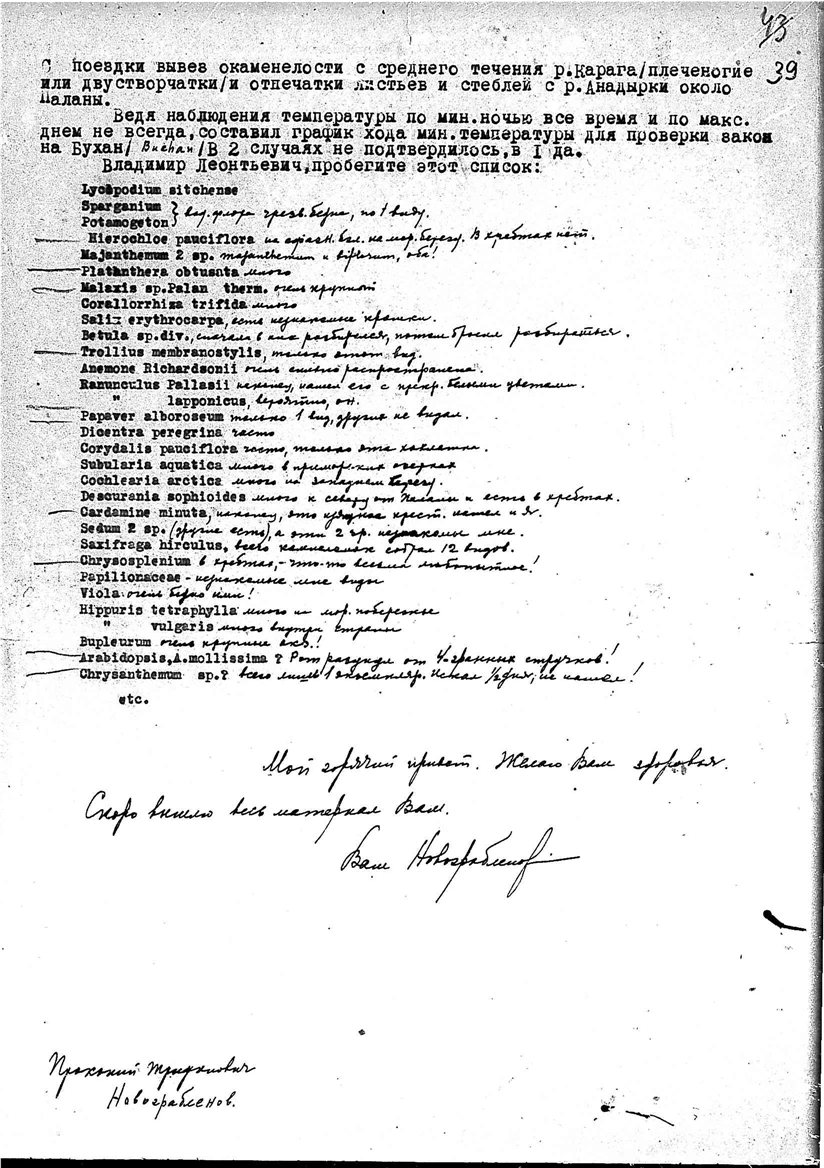 43
39
С поездки вывез окаменелости с среднего течения р.Карага/плеченогие
или двустворчатки/и отпечатки листьев и стеблей с р.Анадырки около
Паланы.
Ведя наблюдения температуры по мин.ночью все время и по макс.
днем не всегда,составил график хода мин.температуры для проверки закон
на Бухан/ Buchan /В 2 случаях не подтвердилось,в I да.
Владимир Леонтьевич,пробегите этот список:
Lycopodium sitchense
Sparganium
Potamogeton } вод. флора чрезв. бедна, по 1 виду.
Hierochloe pauciflora на сфагн. бол. на мор. берегу. В хребтах нет.
Majanthemum 2 sp. majanthemum и bifolium, оба!
Platanthera obtusata много
Malaxis sp.Palan therm. очень крупной
Corallorrhiza trifida много
Salix erythrocarpa, есть незнакомые
Betula sp.div., сначала в них разбирался, потом бросил разбираться.
Trollius membranostylis, только этот вид.
Anemone Richardsonii очень сильно распространена.
Ranunculus Pallasii наконец, нашел его с прекр. белыми цветами.
" lapponicus, вероятно, он.
Papaver alboroseum только 1 вид, других не видал.
Dicentra peregrina часто
Corydalis pauciflora часто, только эта хохлатка.
Subularia aquatica много в приморских озерках
Cochlearia arctica много на западном берегу.
Descurania sophioides много к северу от Палани и есть в хребтах.
Cardamine minuta, наконец, это крест. нашел и я.
Sedum 2 sp. (другие есть), а эти 2 sp. незнакомы мне.
Saxifraga hirculus, всего камнеломок собрал 12 видов.
Chrysosplenium в хребтах, - что-то весьма любопытное!
Papilionaceae - незнакомые мне виды
Viola очень бедно ими!
Hippuris tetraphylla много на мор. побережье
" vulgaris много внутри страны
Bupleurum очень крупные экз.!
Arabidopsis,A.mollissima ? Рот разинул от 4-гранных стручков!
Chrysanthemum sp.? всего лишь 1 экземпляр. Искал 1/2 дня, не нашел!
etc.
Мой горячий привет. Желаю Вам здоровья.
Скоро вышлю весь материал Вам.
Ваш Новограбленов
Прокопий Трифонович
Новограбленов.